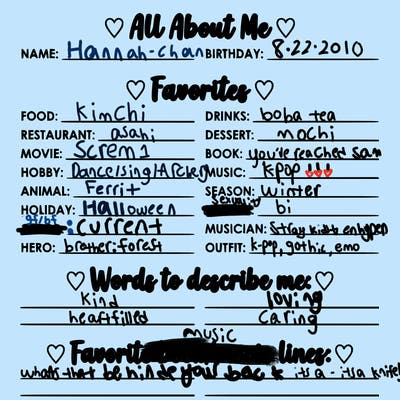 ♡ All About Me ♡
NAME: Hannah-chan BIRTHDAY: 8-22-2010
♡ Favorites ♡
FOOD: Kimchi DRINKS: boba tea
RESTAURANT: asahi DESSERT: mochi
MOVIE: Screm 1 BOOK: you're reached sam
HOBBY: Dance/sing/ MUSIC: kpop
ANIMAL: Ferrit SEASON: Winter
HOLIDAY: Halloween Sexuality bi
gf/bf : current MUSICIAN: Stray kids enhypen
HERO: brother: forest OUTFIT: k-pop, gothic, emo
♡ Words to describe me: ♡
Kind loving
heartfilled caring
music
♡ Favorite lines: ♡
whats that be hinde your back its a - its a knife!